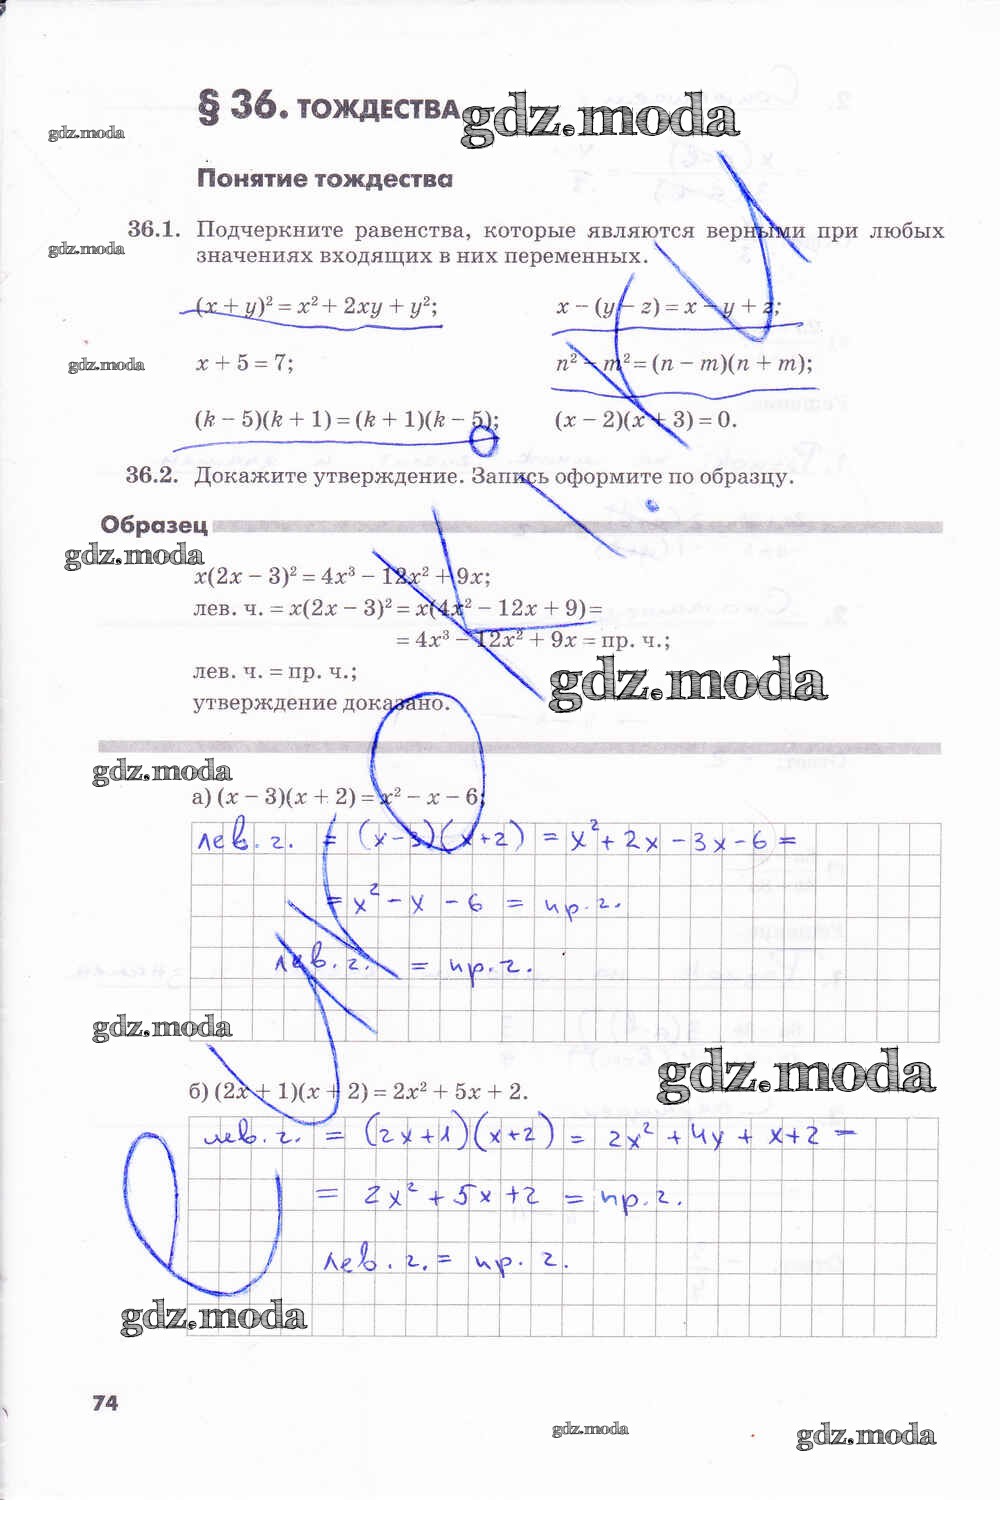 § 36. ТОЖДЕСТВА
gdz.moda
gdz.moda
Понятие тождества
36.1. Подчеркните равенства, которые являются верными при любых
gdz.moda
значениях входящих в них переменных.
(x + y)² = x² + 2xy + y²; x − (y − z) = x − y + z;
gdz.moda
x + 5 = 7; n² − m² = (n − m)(n + m);
(k − 5)(k + 1) = (k + 1)(k − 5); (x − 2)(x + 3) = 0.
36.2. Докажите утверждение. Запись оформите по образцу.
Образец
gdz.moda
x(2x − 3)² = 4x³ − 12x² + 9x;
лев. ч. = x(2x − 3)² = x(4x² − 12x + 9) =
= 4x³ − 12x² + 9x = пр. ч.;
лев. ч. = пр. ч.;
gdz.moda
утверждение доказано.
gdz.moda
а) (x − 3)(x + 2) = x² − x − 6;
лев. ч. = (x−3)(x+2) = x² + 2x − 3x − 6 =
= x² − x − 6 = пр. ч.
лев. ч. = пр. ч.
gdz.moda
gdz.moda
б) (2x + 1)(x + 2) = 2x² + 5x + 2.
лев. ч. = (2x+1)(x+2) = 2x² + 4x + x + 2 =
= 2x² + 5x + 2 = пр. ч.
лев. ч. = пр. ч.
gdz.moda
74
gdz.moda
gdz.moda